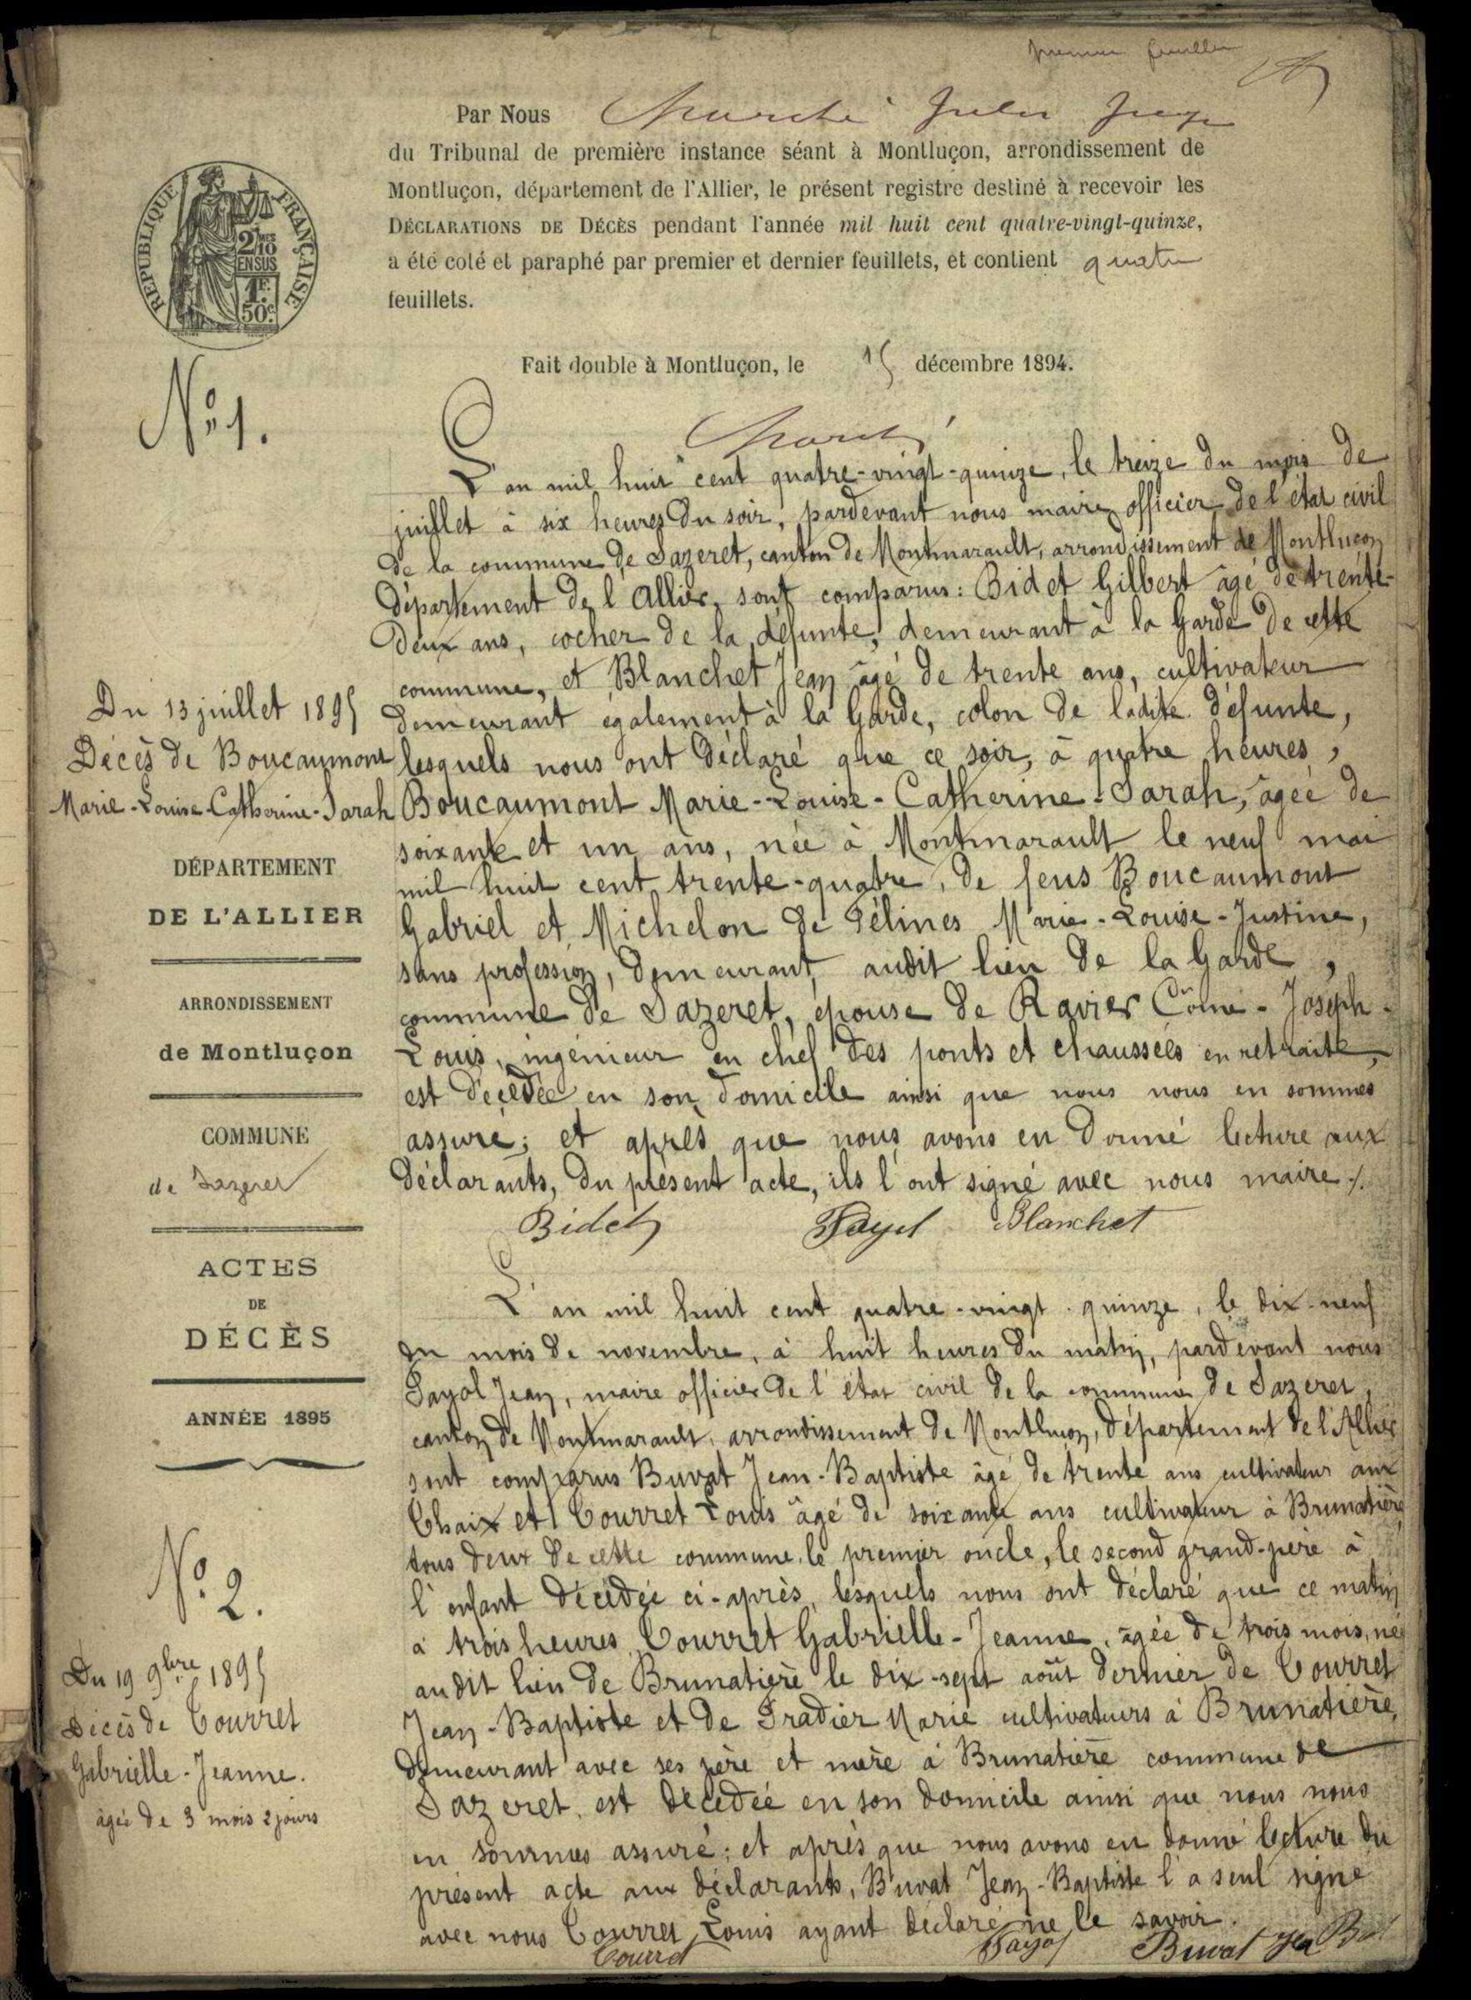 premier feuillet
Par Nous Marché Jules Juge
du Tribunal de première instance séant à Montluçon, arrondissement de
Montluçon, département de l'Allier, le présent registre destiné à recevoir les
DÉCLARATIONS DE DÉCÈS pendant l'année mil huit cent quatre-vingt-quinze,
a été coté et paraphé par premier et dernier feuillets, et contient quatre
feuillets.
Fait double à Montluçon, le 15 décembre 1894.
Marché
RÉPUBLIQUE FRANÇAISE
2 MES
10
EN SUS
1 F.
50 c.
No 1.
Du 13 juillet 1895
Décès de Boucaumont
Marie-Louise-Catherine-Sarah
DÉPARTEMENT
DE L'ALLIER
ARRONDISSEMENT
de Montluçon
COMMUNE
de Sazeret
ACTES
DE
DÉCÈS
ANNÉE 1895
L'an mil huit cent quatre-vingt-quinze, le treize du mois de
juillet à six heures du soir, pardevant nous maire officier de l'état civil
de la commune de Sazeret, canton de Montmarault, arrondissement de Montluçon
département de l'Allier, sont comparus: Bidet Gilbert âgé de trente-
deux ans, cocher de la défunte, demeurant à la Garde de cette
commune, et Blanchet Jean âgé de trente ans, cultivateur
demeurant également à la Garde, colon de ladite défunte,
lesquels nous ont déclaré que ce soir, à quatre heures,
Boucaumont Marie-Louise-Catherine-Sarah, âgée de
soixante et un ans, née à Montmarault le neuf mai
mil huit cent trente-quatre, de feus Boucaumont
Gabriel et Michelon de Félines Marie-Louise-Justine,
sans profession, demeurant audit lieu de la Garde,
commune de Sazeret, épouse de Ravier Côme-Joseph-
Louis, ingénieur en chef des ponts et chaussées en retraite,
est décédée en son domicile ainsi que nous nous en sommes
assuré; et après que nous avons en donné lecture aux
déclarants, du présent acte, ils l'ont signé avec nous maire./.
Bidet Payol Blanchet
No 2.
Du 19 9bre 1895
Décès de Tourret
Gabrielle-Jeanne.
âgée de 3 mois 2 jours
L'an mil huit cent quatre-vingt-quinze, le dix-neuf
du mois de novembre, à huit heures du matin, pardevant nous
Payol Jean, maire officier de l'état civil de la commune de Sazeret,
canton de Montmarault, arrondissement de Montluçon, département de l'Allier
sont comparus Buvat Jean-Baptiste âgé de trente ans cultivateur aux
Chaix et Tourret Louis âgé de soixante ans cultivateur à Brunatière
tous deux de cette commune, le premier oncle, le second grand-père à
l'enfant décédée ci-après, lesquels nous ont déclaré que ce matin
à trois heures Tourret Gabrielle-Jeanne, âgée de trois mois, née
audit lieu de Brunatière le dix-sept août dernier de Tourret
Jean-Baptiste et de Pradier Marie cultivateurs à Brunatière,
demeurant avec ses père et mère à Brunatière commune de
Sazeret, est décédée en son domicile ainsi que nous nous
en sommes assuré; et après que nous avons en donné lecture du
présent acte aux déclarants, Buvat Jean-Baptiste l'a seul signé
avec nous Tourret Louis ayant déclaré ne le savoir.
Tourret Payol Buvat Jean